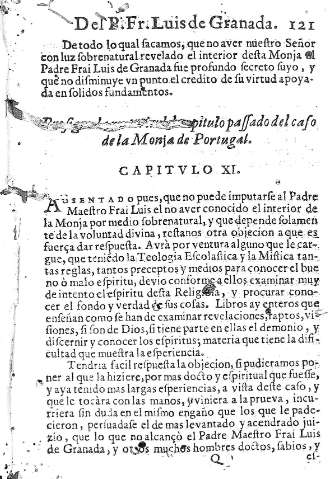 Del P. Fr. Luis de Granada. 121
De todo lo qual sacamos, que no aver nuestro Señor
con luz sobrenatural revelado el interior desta Monja al
Padre Frai Luis de Granada fue profundo secreto suyo, y
que no disminuye un punto el credito de su virtud apoya-
da en solidos fundamentos.
capitulo passado del caso
de la Monja de Portugal.
CAPITVLO XI.
ASSENTADO pues, que no puede imputarse al Padre
Maestro Frai Luis el no aver conocido el interior de
la Monja por medio sobrenatural, y que depende solamen
te de la voluntad divina, restanos otra objecion a que es
fuerça dar respuesta. Avrà por ventura alguno que le car-
gue, que teniẽdo la Teologia Escolastica y la Mistica tan-
tas reglas, tantos preceptos y medios para conocer el bue
no ò malo espiritu, devio conforme a ellos examinar muy
de intento el espiritu desta Religiosa, y procurar cono-
cer el fondo y verdad de sus cosas. Libros ay enteros que
enseñan como se han de examinar revelaciones, raptos, vi-
siones, si son de Dios, si tiene parte en ellas el demonio, y
discernir y conocer los espiritus; materia que tiene la difi-
cultad que muestra la esperiencia.
Tendria facil respuesta la objecion, si pudieramos po-
ner al que la hiziere, por mas docto y espiritual que fuesse,
y aya tenido mas largas esperiencias, a vista deste caso, y
que le tocàra con las manos, y viniera a la prueva, incu-
rriera sin duda en el mismo engaño que los que le pade-
cieron, persuadase el de mas levantado y acendrado jui-
zio, que lo que no alcançò el Padre Maestro Frai Luis
de Granada, y otros muchos hombres doctos, sabios, y
Q el-